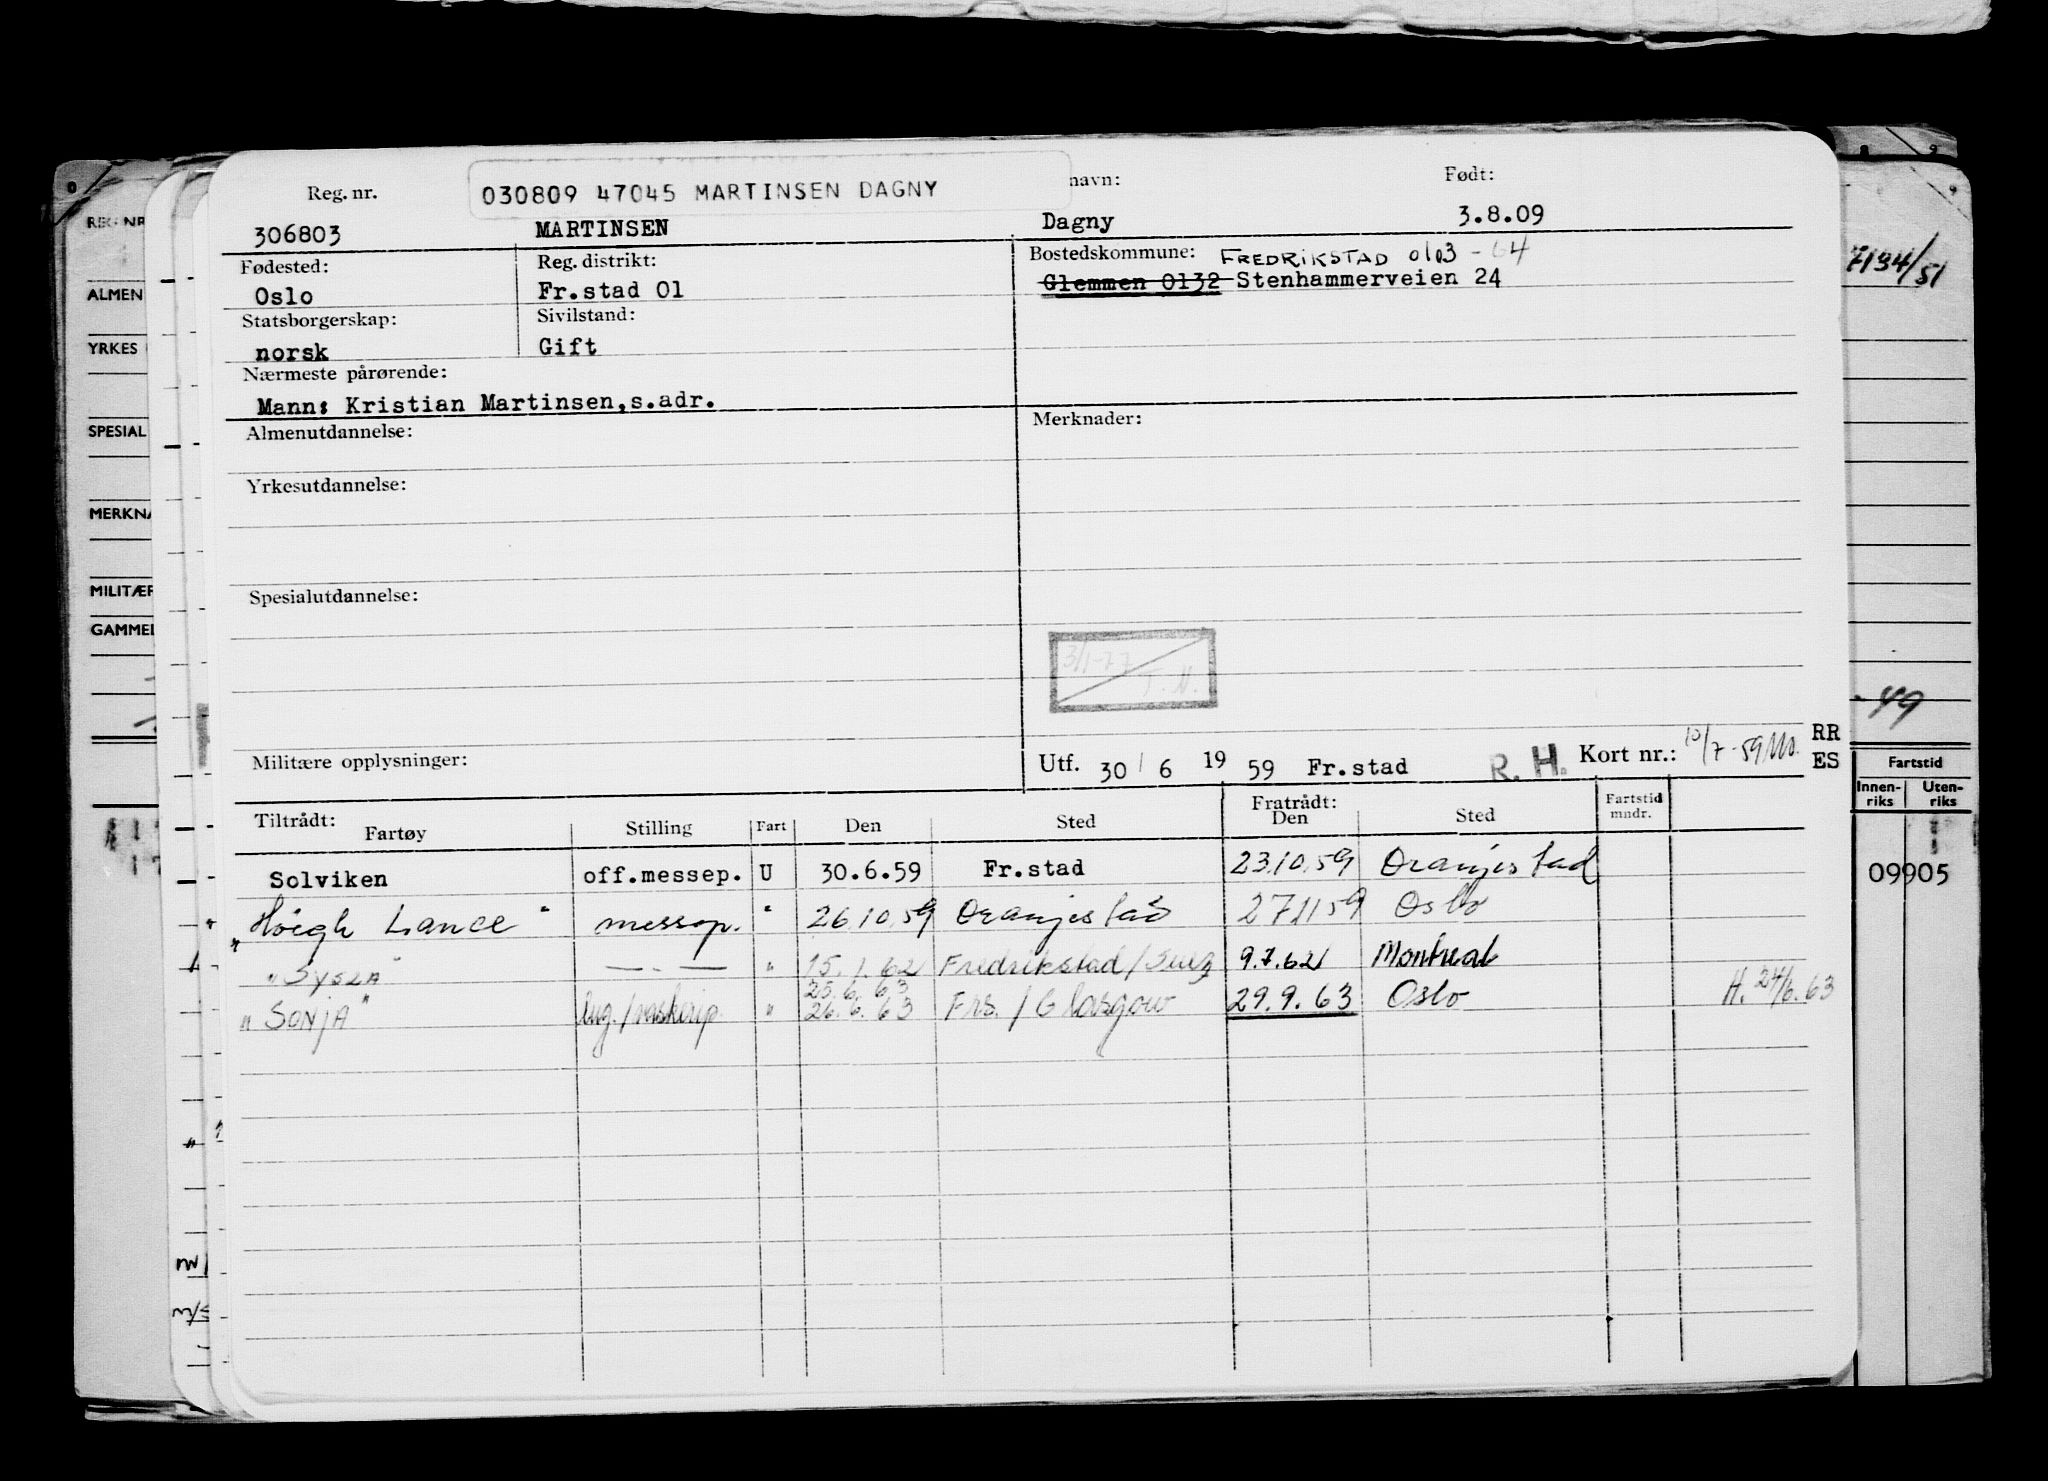 Reg. nr.
030809 47045 MARTINSEN DAGNY
navn:
Født:
306803 MARTINSEN Dagny 3.8.09
Fødested: Reg. distrikt: Bostedskommune: FREDRIKSTAD 0103 - 64
Oslo Fr.stad 01 Glemmen 0132 Stenhammerveien 24
Statsborgerskap: Sivilstand:
norsk Gift
Nærmeste pårørende:
Mann: Kristian Martinsen, s.adr.
Almenutdannelse: Merknader:
Yrkesutdannelse:
Spesialutdannelse:
3/1-77
T. N.
Militære opplysninger: Utf. 30 / 6 19 59 Fr.stad R. H. Kort nr.: 10/7-59
RR
ES
Tiltrådt: Fratrådt:
Fartøy Stilling Fart Den Sted Den Sted Fartstid mndr.
Solviken off.messep. U 30.6.59 Fr.stad 23.10.59 Oranjestad
"Höegh Lance" messep. " 26.10.59 Oranjestad 27.11.59 Oslo
"SYSLA" — . — " 15.1.62 Fredrikstad/Suez 9.7.62 Montreal
25.6.63
"SONJA" lug./vaskerip. " 26.6.63 Frs./Glasgow 29.9.63 Oslo H. 24/6.63
0
REG. NR
ALMEN
YRKES
SPESIAL
MERKNA
MILITÆR
GAMMEL
8 9
7134/51
-49
Fartstid
Innen-riks Uten-riks
09905